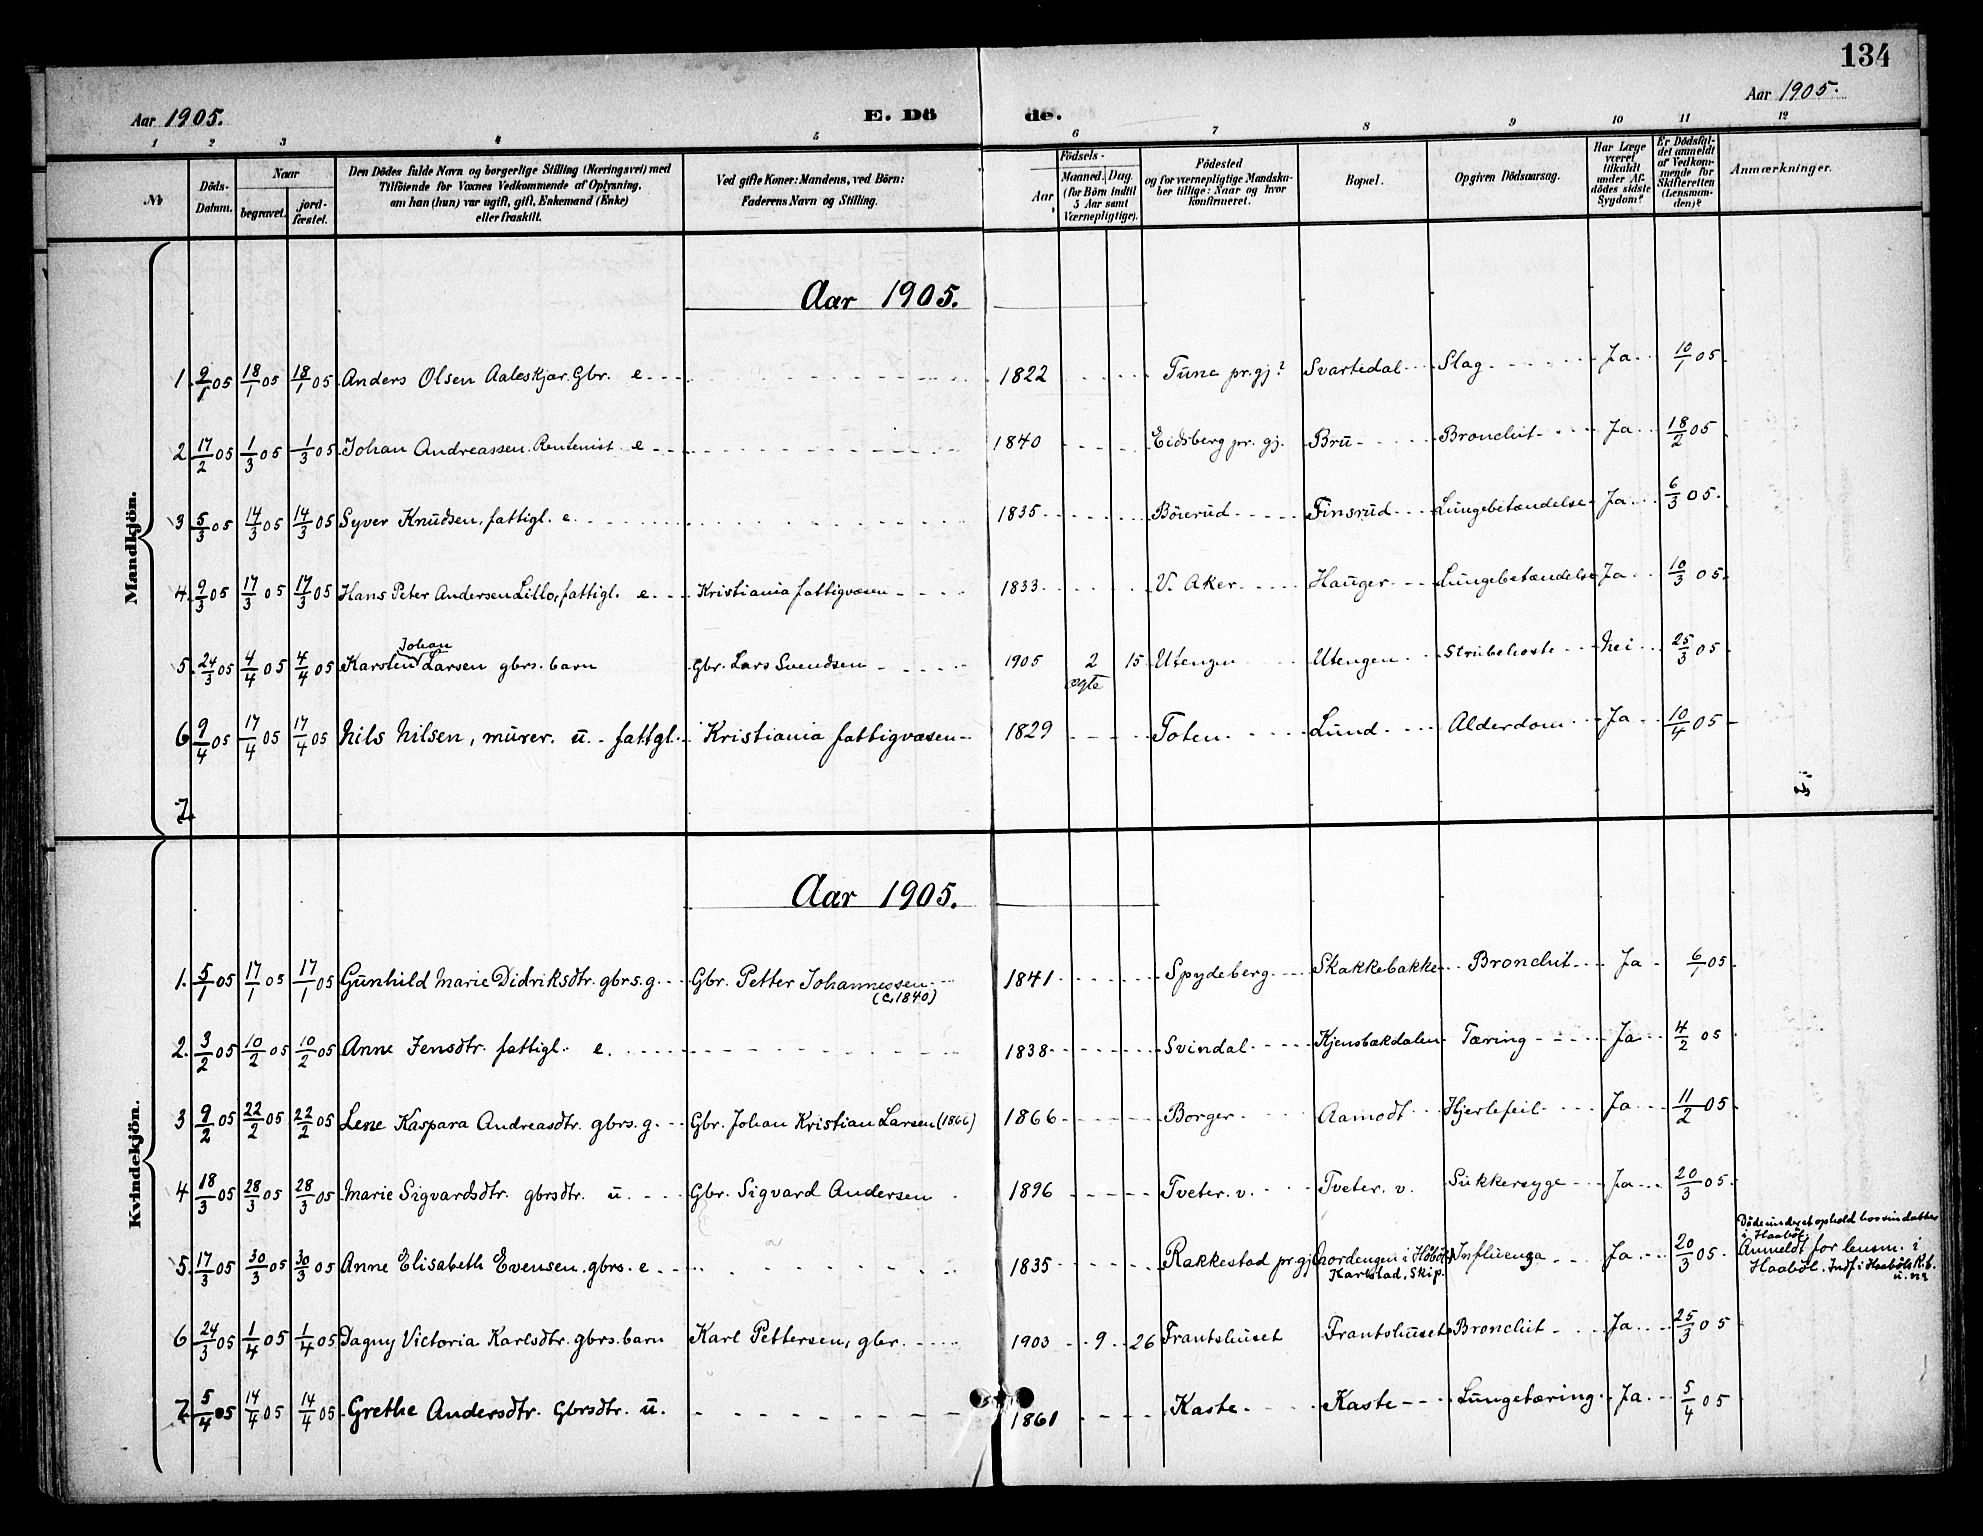 134
Aar 1905.
E. Dö
de.
Aar 1905.
1 2 3 4 5 6 7 8 9 10 11 12
No
Döds-Datum.
Naar
begravet.
jord-fæstet.
Den Dödes fulde Navn og borgerlige Stilling (Næringsvei) med
Tilföiende for Voxnes Vedkommende af Oplysning,
om han (hun) var ugift, gift, Enkemand (Enke)
eller fraskilt.
Ved gifte Koner: Mandens, ved Börn:
Faderens Navn og Stilling.
Födsels-
Aar
Maaned. Dag.
(for Börn indtil
5 Aar samt
Værnepligtige).
Födested
og for værnepligtige Mandska-
ber tillige: Naar og hvor
konfirmeret.
Bopæl.
Opgiven Dödsaarsag.
Har Læge
været
tilkaldt
under Af-
dödes sidste
Sygdom?
Er Dödsfal-
det anmeldt
af Vedkom-
mende for
Skifteretten
(Lensman-
den)?
Anmærkninger.
Mandkjön.
Aar 1905.
1. 9/1 05 18/1 05 18/1 05 Anders Olsen Aaleskjær. Gbr. e 1822 Tune pr.gj? Svartedal Slag Ja 10/1 05
2 17/2 05 1/3 05 1/3 05 Johan Andreassen. Rentenist e 1840 Eidsberg pr. gj. Bru Bronchit Ja 18/2 05
3 5/3 05 14/3 05 14/3 05 Syver Knudsen, fattigl. e. 1835 Böierud Finsrud Lungebetændelse Ja 6/3 05
4. 9/3 05 17/3 05 17/3 05 Hans Peter Andersen Lillo, fattigl. e. Kristiania fattigvæsen 1833 V. Aker Hauger Lungebetændelse Ja 10/3 05
Johan
5. 24/3 05 4/4 05 4/4 05 Karsten Larsen gbrs. barn Gbr. Lars Svendsen 1905 2 15 Utengen Utengen Strubehoste Nei 25/3 05
ægte
6 9/4 05 17/4 05 17/4 05 Nils Nilsen, murer. u. fattgl. Kristiania fattigvæsen 1829 Toten Lund Alderdom Ja 10/4 05
7.
Kvindekjön.
Aar 1905.
1. 5/1 05 17/1 05 17/1 05 Gunhild Marie Didriksdtr. gbrs. g. Gbr. Petter Johannessen 1841 Spydeberg Skakkebakke Bronchit Ja 6/1 05
(c. 1840)
2. 3/2 05 10/2 05 10/2 05 Anne Jensdtr. fattigl. e. 1838 Svindal Kjensbækdalen Tæring Ja 4/2 05
3 9/2 05 22/2 05 22/2 05 Lene Kaspara Andreasdtr. gbrs. g. Gbr. Johan Kristian Larsen (1866) 1866 Borger Aamodt Hjertefeil Ja 11/2 05
4 18/3 05 28/3 05 28/3 05 Marie Sigvardsdtr. gbrsdtr. u. Gbr. Sigvard Andersen 1896 Tveter. v. Tveter. v. Sukkersyge Ja 20/3 05
5. 17/3 05 30/3 05 30/3 05 Anne Elisabeth Evensen. gbrs. e 1835 Rakkestad pr.gj. i Höböl Karlstad, Skip. Influenza Ja 20/3 05 Döde under et ophold hos sin datter
i Haaböl.
Anmeldt for lensm. i
Haaböl. Indf. i Haaböls K.b.
u. n2
6 24/3 05 1/4 05 1/4 05 Dagny Victoria Karlsdtr. gbrs. barn Karl Pettersen, gbr. 1903 9 26 Frantshuset Frantshuset Bronchit Ja 25/3 05
7. 5/4 05 14/4 05 14/4 05 Grethe Andersdtr. Gbrsdtr. u. 1861 Kaste Kaste Lungetæring Ja 5/4 05